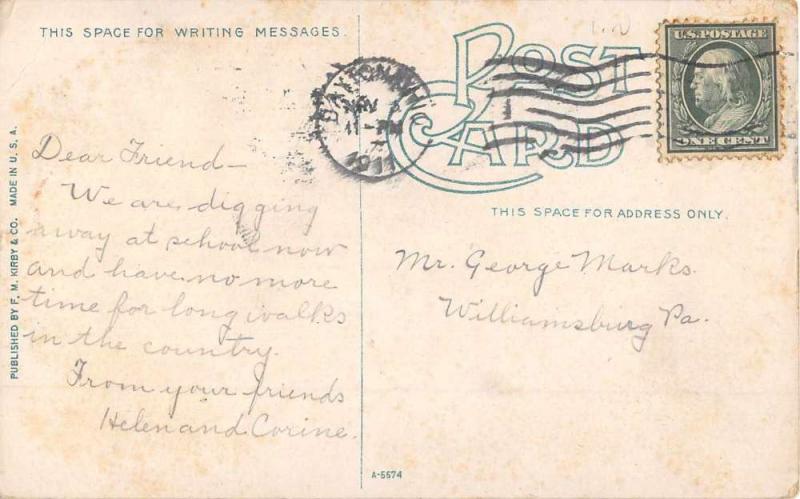 THIS SPACE FOR WRITING MESSAGES.
POST CARD
U.S. POSTAGE
ONE CENT
11-PM
1911
THIS SPACE FOR ADDRESS ONLY.
Dear Friend—
We are digging
away at school now
and have no more
time for long walks
in the country.
From your friends
Helen and Corine.
Mr. George Marks.
Williamsburg Pa.
PUBLISHED BY F. M. KIRBY & CO. MADE IN U. S. A.
A-5574